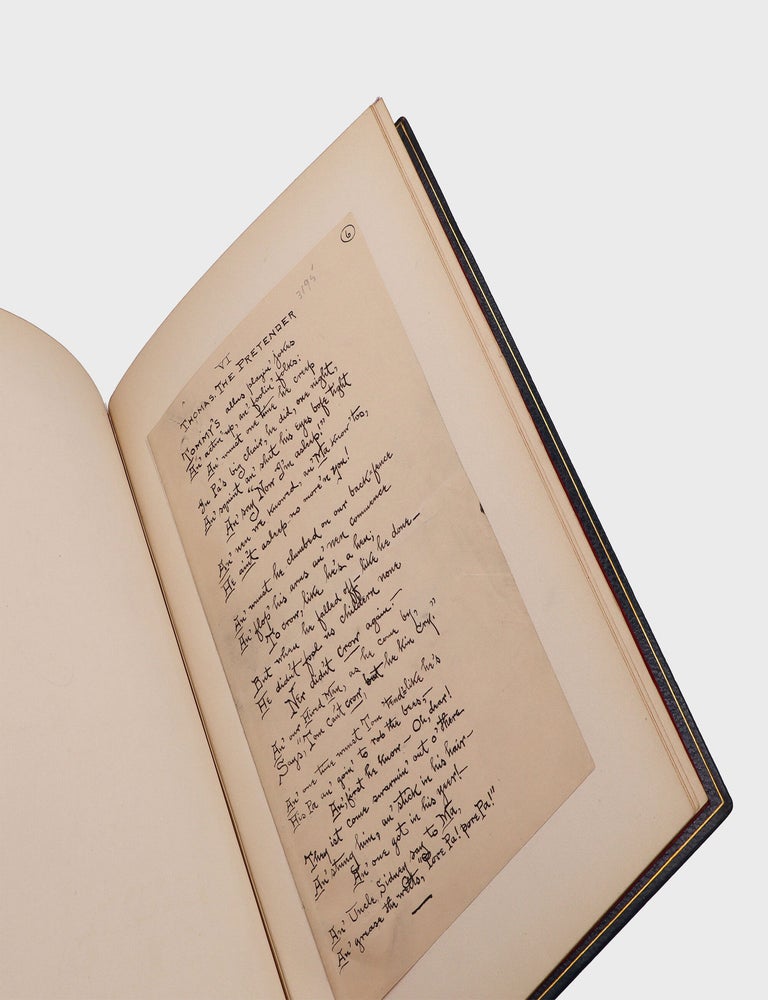 6
3195
VI
THOMAS, THE PRETENDER
TOMMY'S allus playin' jokes
An' actin' up, an' foolin' folks:
An' wunst one time he creep
In Pa's big chair, he did, one night,
An' squint an' shut his eyes bofe tight
An' say "Now I'm asleep!"
An' nen we knowed, an' Ma know' too,
He ain't asleep no more'n you!
An' wunst he clumbed on our back-fence
An' flop his arms an' nen commence
To crow, like he's a hen;
But when he falled off like he done—
He didn't fool us childern none
Ner didn't crow again.—
An' our Hired Man, as he come by,
Says, "Tom can't crow, but he kin cry."
An' one time wunst Tom 'tend-like he's
His Pa an' goin' to rob the bees;—
An', first he know—Oh, dear!
They ist come swarmin' out o' there
An' stung him, an' stick in his hair—
An' one got in his yeer!—
An' Uncle Sidney say to Ma,
An' grease the welts, "Pore Pa! pore Pa!"